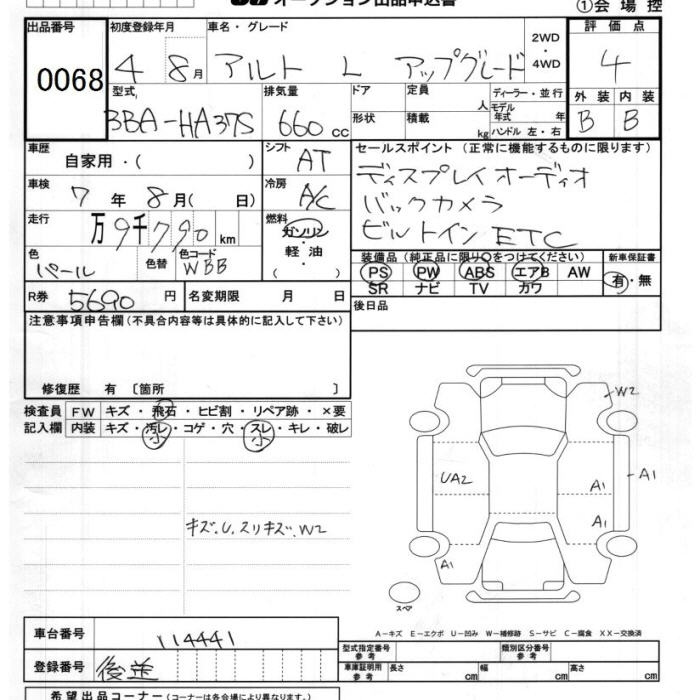 オークション出品申込書 ①会場控
出品番号 0068
初度登録年月 4 8月
車名・グレード アルト L アップグレード
2WD・4WD
評価点 4
外装 B 内装 B
型式 BBA-HA37S
排気量 660 cc
ドア 形状
定員 人 積載 kg
ディーラー・並行
モデル年式 年
ハンドル 左・右
車歴 自家用・( )
シフト AT
セールスポイント (正常に機能するものに限ります)
ディスプレイオーディオ
バックカメラ
ビルトインETC
車検 7年 8月( 日)
冷房 A/C
走行 万9千790 km
燃料 ガソリン・軽油 ( )
色 パール 色替 色コード WBB
装備品 (純正品に限り○をつけてください)
PS PW ABS エアB AW
SR ナビ TV カワ
新車保証書 有・無
R券 5690 円 名変期限 月 日
後日品
注意事項申告欄 (不具合内容等は具体的に記入して下さい)
修復歴 有 〔箇所 〕
検査員記入欄
FW キズ・飛石・ヒビ割・リペア跡・×要
内装 キズ・汚レ・コゲ・穴・スレ・キレ・破レ
小 小
キズ.U.スリキズ.W2
W2
UA2
A1
A1
A1
A1
スペア
A-キズ E-エクボ U-凹み W-補修跡 S-サビ C-腐食 XX-交換済
車台番号 114441
登録番号 後送
型式指定番号 参考 類別区分番号 参考
車庫証明用 参考 長さ cm 幅 cm 高さ cm
希望出品コーナー (コーナーは各会場により異なります。)